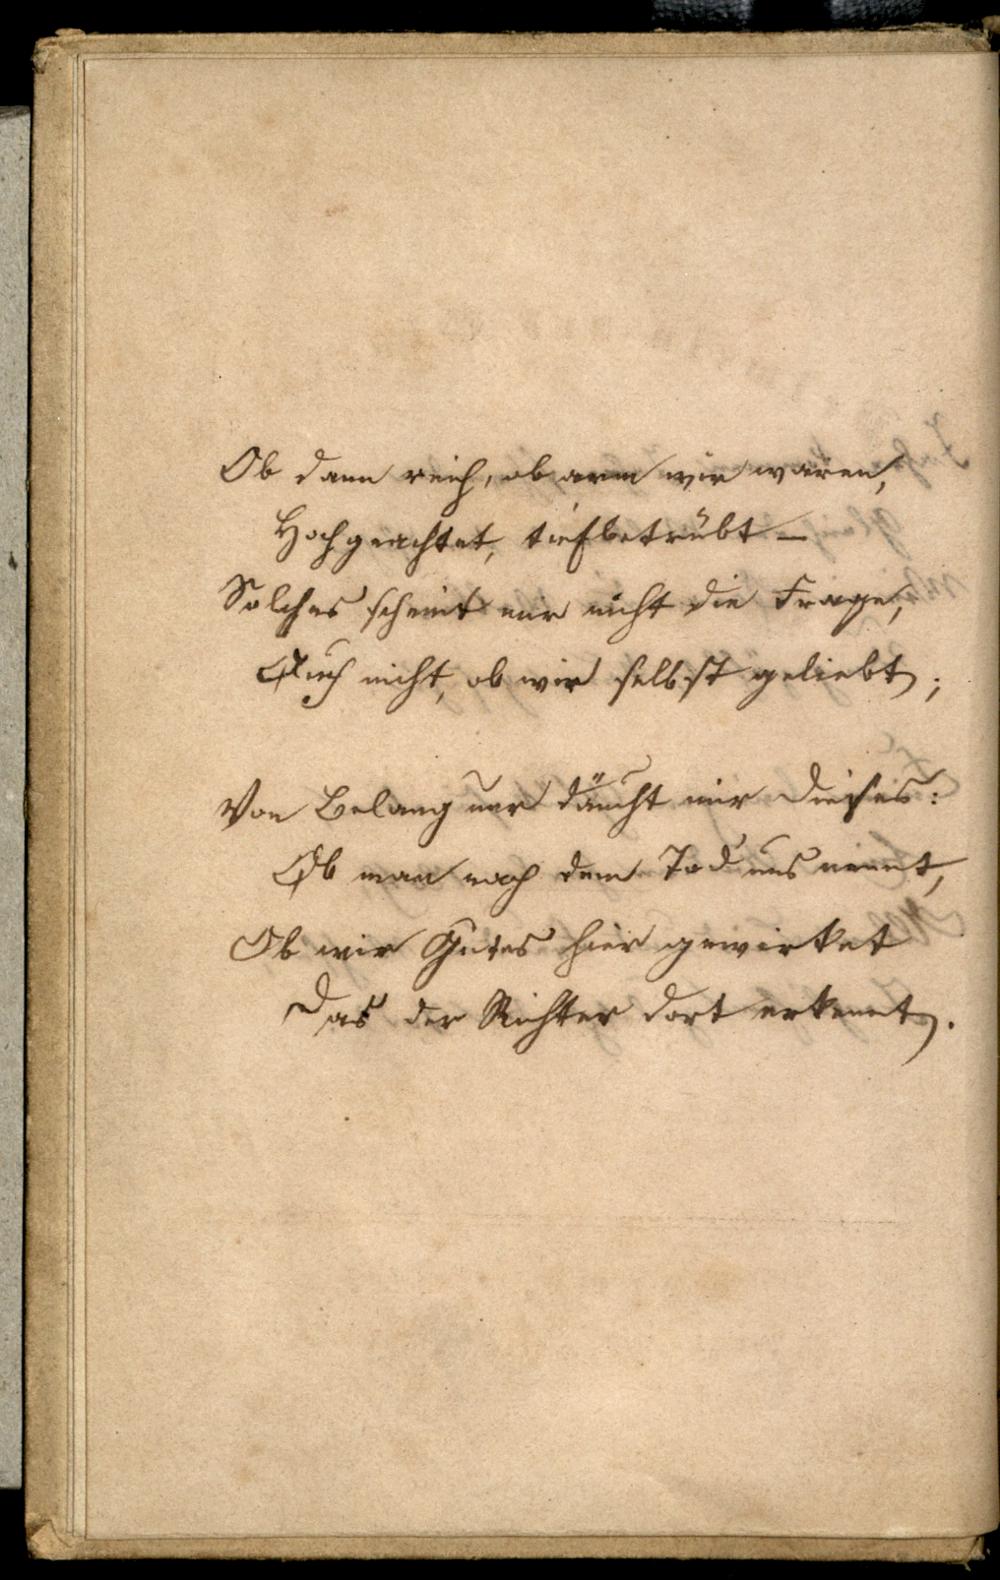 Ob dann reich, ob arm wir waren,
Hochgeachtet, tiefbetrübt –
Solches scheint mir nicht die Frage,
Auch nicht, ob wir selbst geliebt;
Von Belang nur däucht mir dieses:
Ob man nach dem Tod uns nennt,
Ob wir Gutes hier gewirket
Das der Richter dort erkennt.